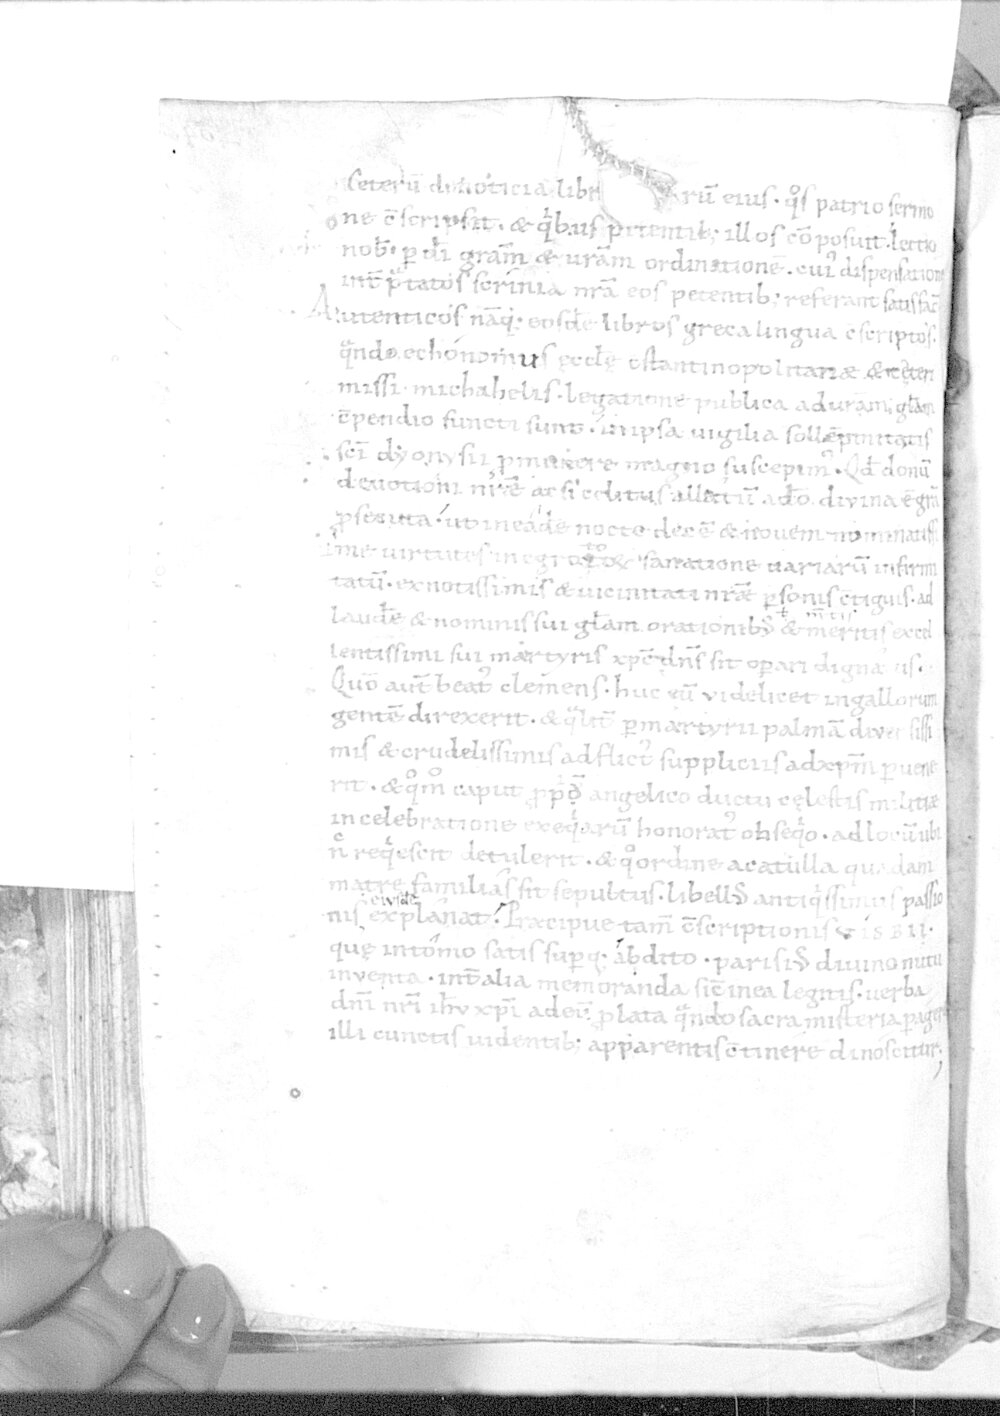 Ceterū de noticia libr rū eius · qͦs patrio sermo
ne c̄scripsit · & qͥbus petentib; illos cōposuit · lectio
nob̄ · p dī gram̄ & uram̄ ordinationē · cui᾽ dispensation
int̄ p̄tatos scrinia nrā eos petentib; referant satisfac̄
Autenticos nāq; eosdē libros greca lingua c̄scriptos ·
qͣndo echonomus ęcclę c̄stantinopolitanæ & cęteri
missi michahelis · legatione publica ad uram̄ glam̄
c̄pendio functi sunt · in ipsa uigilia sollēpnitatis
sc̄i dyonysii p munere magno suscepim᾽ · Qd̄ donū
deuotioni nr̄ę ac si cęlitus allatū · adō diuina ē grā
psecuta · ut in eadē nocte decē & nouem nominatissi
me uirtutes in egro sanatione uariarū infirmi
tatū · ex notissimis & uicinitati nrǣ psonis c̄tiguis · ad
laudē & nominis sui glam̄ orationib᾽ & meritis excel
lentissimi sui martyris xpc̄ dn̄s sit operari dignatus ·
Quō aut̄ beat᾽ clemens · huc eū videlicet in gallorum
gentē direxerit · & qͣlit̄ p martyrii palmā diuersissi
mis & crudelissimis adflict᾽ suppliciis ad xpm̄ puene
rit · & qͦm caput ppͥū angelico ductu cęlestis militiæ
in celebratione exeqͥarū honorat᾽ obseqͥo · ad locū ubi
nc̄ reqͥescit detulerit · & qͦ ordine a catulla quadam
matre familias sit sepultus · libell᾽ antiqͥssimus passio
nis eiusdē explanat · Præcipue tam̄ c̄scriptionis VISBII ·
quę in tomo satis supq; abdito · parisi᾽ diuino nutu
inuenta · int̄ alia memoranda sic̄ in ea legitis · uerba
dn̄i nr̄i ihū xpī ad eū plata qͣndo sacra misteria pageret
illi cunctis uidentib; apparentis c̄tinere dinoscitur;